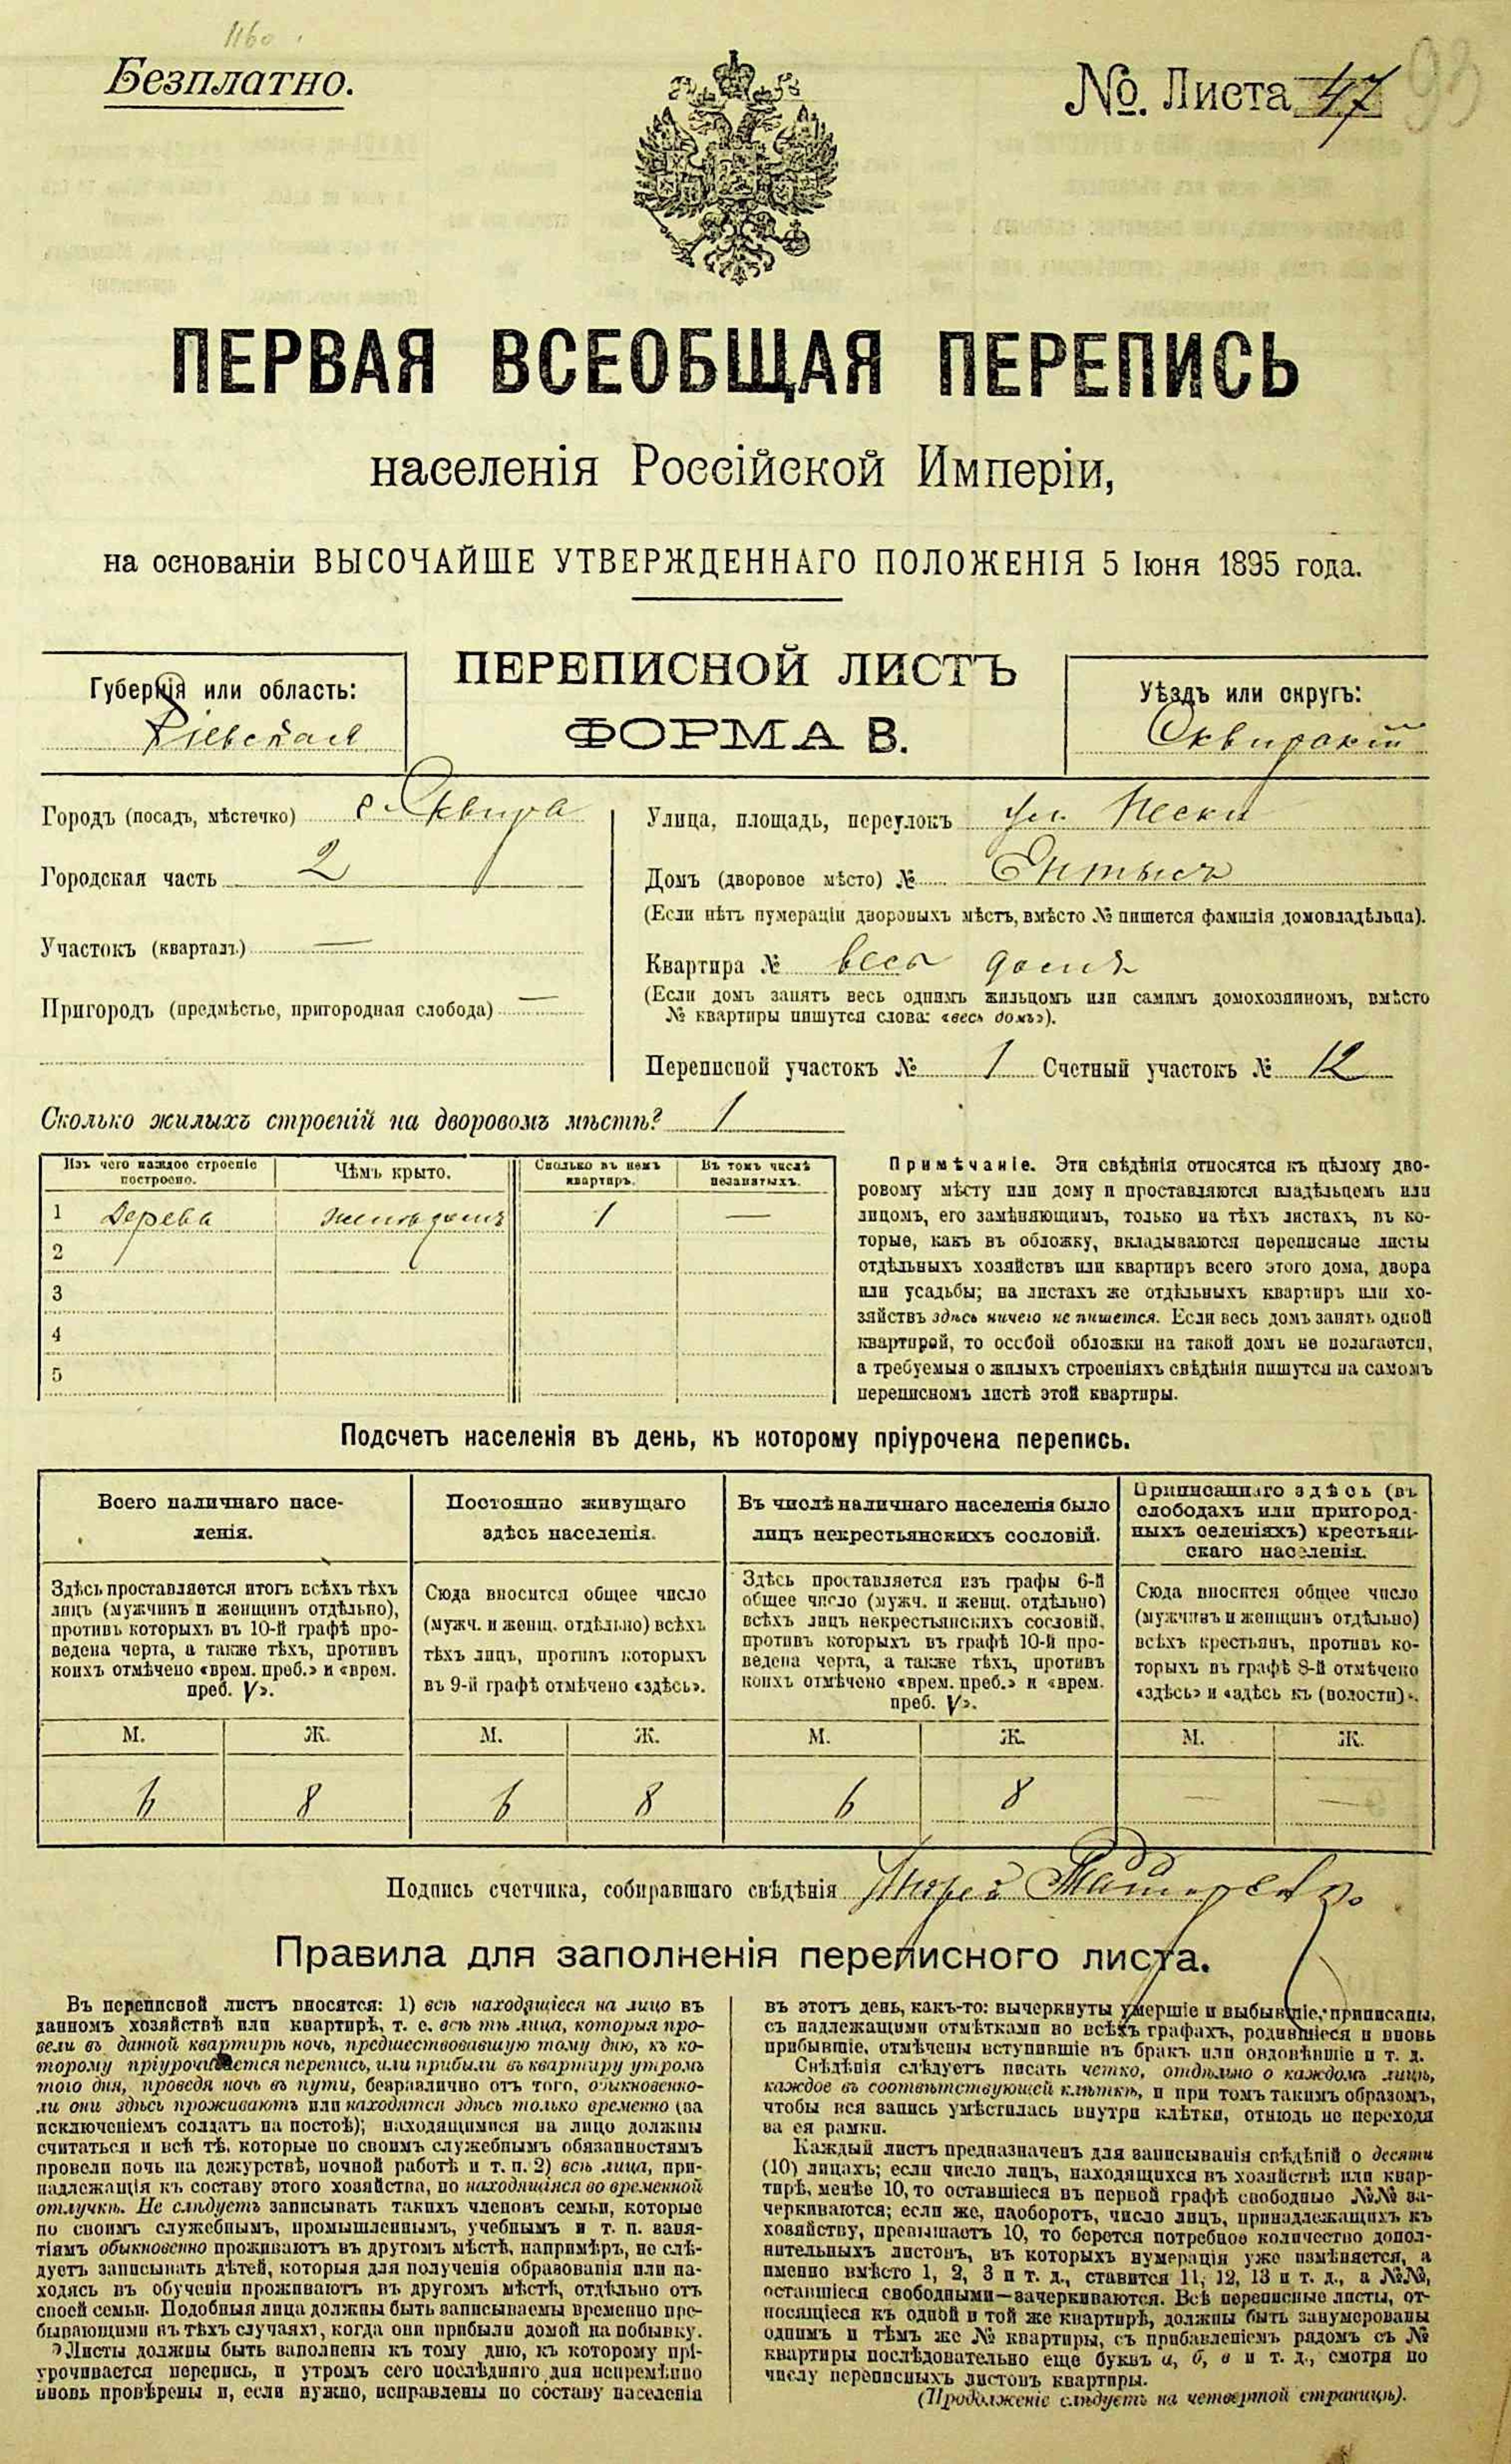 1160
Безплатно.
№. Листа 47
93
ПЕРВАЯ ВСЕОБЩАЯ ПЕРЕПИСЬ
населенія Россійской Имперіи,
на основаніи ВЫСОЧАЙШЕ УТВЕРЖДЕННАГО ПОЛОЖЕНІЯ 5 Іюня 1895 года.
ПЕРЕПИСНОЙ ЛИСТЪ
ФОРМА В.
Губернія или область:
Кіевская
Уѣздъ или округъ:
Сквирскій
Городъ (посадъ, мѣстечко) г. Сквира
Городская часть 2
Участокъ (кварталъ) —
Пригородъ (предмѣстье, пригородная слобода) —
Улица, площадь, переулокъ ул. Пески
Домъ (дворовое мѣсто) №
(Если нѣтъ нумераціи дворовыхъ мѣстъ, вмѣсто № пишется фамилія домовладѣльца).
Квартира № весь домъ
(Если домъ занятъ весь однимъ жильцомъ или самимъ домохозяиномъ, вмѣсто
№ квартиры пишутся слова: «весь домъ»).
Переписной участокъ № 1 Счетный участокъ № 12
Сколько жилыхъ строеній на дворовомъ мѣстѣ? 1
Изъ чего каждое строеніе
построено.
Чѣмъ крыто.
Сколько въ немъ
квартиръ.
Въ томъ числѣ
незанятыхъ.
1 Дерева 1 —
2
3
4
5
Примѣчаніе. Эти свѣдѣнія относятся къ цѣлому дво-
ровому мѣсту или дому и проставляются владѣльцемъ или
лицомъ, его замѣняющимъ, только на тѣхъ листахъ, въ ко-
торые, какъ въ обложку, вкладываются переписные листы
отдѣльныхъ хозяйствъ или квартиръ всего этого дома, двора
или усадьбы; на листахъ же отдѣльныхъ квартиръ или хо-
зяйствъ здѣсь ничего не пишется. Если весь домъ занятъ одной
квартирой, то особой обложки на такой домъ не полагается,
а требуемыя о жилыхъ строеніяхъ свѣдѣнія пишутся на самомъ
переписномъ листѣ этой квартиры.
Подсчетъ населенія въ день, къ которому пріурочена перепись.
Всего наличнаго насе-
ленія.
Здѣсь проставляется итогъ всѣхъ тѣхъ
лицъ (мужчинъ и женщинъ отдѣльно),
противъ которыхъ въ 10-й графѣ про-
ведена черта, а также тѣхъ, противъ
коихъ отмѣчено «врем. преб.» и «врем.
преб. V».
Постоянно живущаго
здѣсь населенія.
Сюда вносится общее число
(мужч. и женщ. отдѣльно) всѣхъ
тѣхъ лицъ, противъ которыхъ
въ 9-й графѣ отмѣчено «здѣсь».
Въ числѣ наличнаго населенія было
лицъ некрестьянскихъ сословій.
Здѣсь проставляется изъ графы 6-й
общее число (мужч. и женщ. отдѣльно)
всѣхъ лицъ некрестьянскихъ сословій,
противъ которыхъ въ графѣ 10-й про-
ведена черта, а также тѣхъ, противъ
коихъ отмѣчено «врем. преб.» и «врем.
преб. V».
Приписаннаго здѣсь (въ
слободахъ или пригород-
ныхъ селеніяхъ) крестьян-
скаго населенія.
Сюда вносится общее число
(мужчинъ и женщинъ отдѣльно)
всѣхъ крестьянъ, противъ ко-
торыхъ въ графѣ 8-й отмѣчено
«здѣсь» и «здѣсь къ (волости)».
М. Ж. М. Ж. М. Ж. М. Ж.
6 8 6 8 6 8 — —
Подпись счетчика, собиравшаго свѣдѣнія
Правила для заполненія переписного листа.
Въ переписной листъ вносятся: 1) всѣ находящіеся на лицо въ
данномъ хозяйствѣ или квартирѣ, т. е. всѣ тѣ лица, которыя про-
вели въ данной квартирѣ ночь, предшествовавшую тому дню, къ ко-
торому пріурочивается перепись, или прибыли въ квартиру утромъ
того дня, проведя ночь въ пути, безразлично отъ того, обыкновенно-
ли они здѣсь проживаютъ или находятся здѣсь только временно (за
исключеніемъ солдатъ на постоѣ); находящимися на лицо должны
считаться и всѣ тѣ, которые по своимъ служебнымъ обязанностямъ
провели ночь на дежурствѣ, ночной работѣ и т. п. 2) всѣ лица, при-
надлежащія къ составу этого хозяйства, но находящіяся во временной
отлучкѣ. Не слѣдуетъ записывать такихъ членовъ семьи, которые
по своимъ служебнымъ, промышленнымъ, учебнымъ и т. п. заня-
тіямъ обыкновенно проживаютъ въ другомъ мѣстѣ, напримѣръ, не слѣ-
дуетъ записывать дѣтей, которыя для полученія образованія или на-
ходясь въ обученіи проживаютъ въ другомъ мѣстѣ, отдѣльно отъ
своей семьи. Подобныя лица должны быть записываемы временно пре-
бывающими въ тѣхъ случаяхъ, когда они прибыли домой на побывку.
Листы должны быть заполнены къ тому дню, къ которому прі-
урочивается перепись, и утромъ сего послѣдняго дня непремѣнно
вновь провѣрены и, если нужно, исправлены по составу населенія
въ этотъ день, какъ-то: вычеркнуты умершіе и выбывшіе, приписаны,
съ надлежащими отмѣтками во всѣхъ графахъ, родившіеся и вновь
прибывшіе, отмѣчены вступившіе въ бракъ или овдовѣвшіе и т. д.
Свѣдѣнія слѣдуетъ писать четко, отдѣльно о каждомъ лицѣ,
каждое въ соотвѣтствующей клѣткѣ, и при томъ такимъ образомъ,
чтобы вся запись умѣстилась внутри клѣтки, отнюдь не переходя
за ея рамки.
Каждый листъ предназначенъ для записыванія свѣдѣній о десяти
(10) лицахъ; если число лицъ, находящихся въ хозяйствѣ или квар-
тирѣ, менѣе 10, то оставшіеся въ первой графѣ свободные №№ за-
черкиваются; если же, наоборотъ, число лицъ, принадлежащихъ къ
хозяйству, превышаетъ 10, то берется потребное количество допол-
нительныхъ листовъ, въ которыхъ нумерація уже измѣняется, а
именно вмѣсто 1, 2, 3 и т. д., ставится 11, 12, 13 и т. д., а №№,
оставшіеся свободными—зачеркиваются. Всѣ переписные листы, от-
носящіеся къ одной и той же квартирѣ, должны быть занумерованы
однимъ и тѣмъ же № квартиры, съ прибавленіемъ рядомъ съ №
квартиры послѣдовательно еще буквъ а, б, в и т. д., смотря по
числу переписныхъ листовъ квартиры.
(Продолженіе слѣдуетъ на четвертой страницѣ).